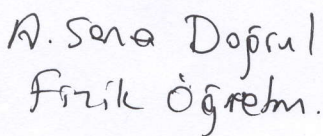 A. Sena Doğrul
Fizik Öğretm.